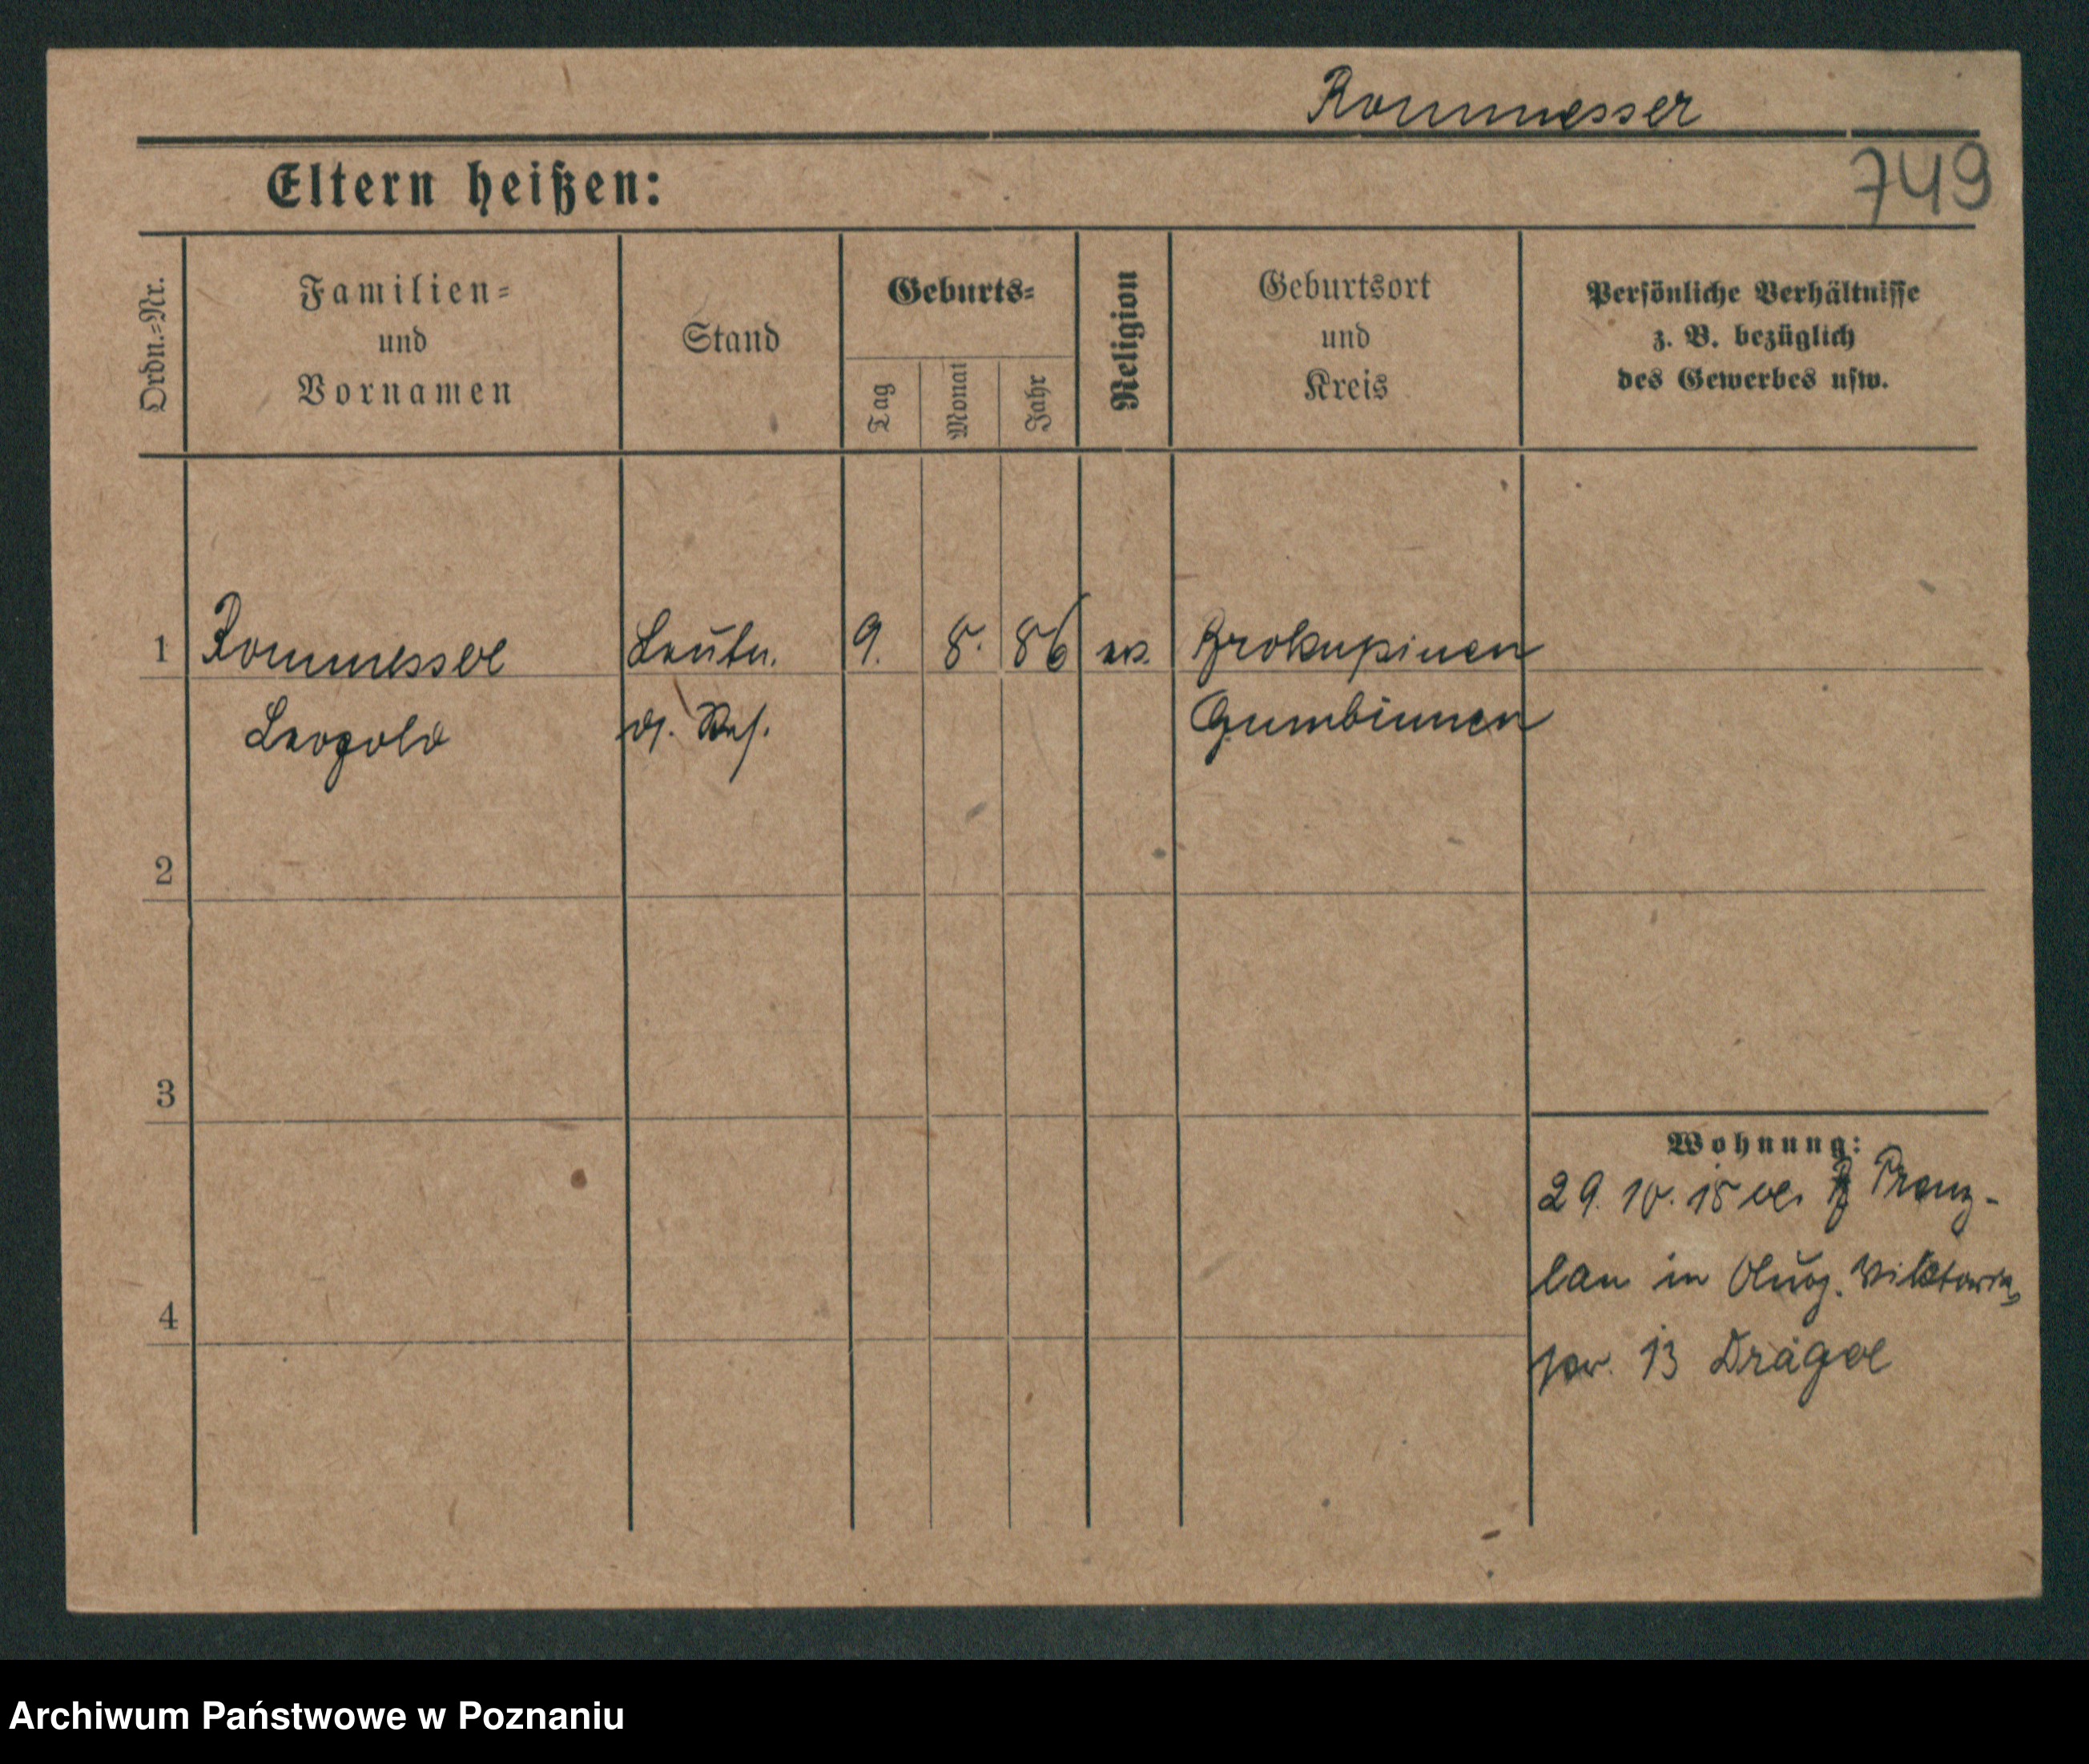 Rommesser
Eltern heißen:
749
Ordn.-Nr.
Familien-
und
Vornamen
Stand
Geburts-
Tag
Monat
Jahr
Religion
Geburtsort
und
Kreis
Persönliche Verhältnisse
z. B. bezüglich
des Gewerbes usw.
1 Rommesser Leutn. 9. 8. 86 ev. Brokupinen
Leopold d. Res. Gumbinnen
2
3
4
Wohnung:
29. 10. 18 Prenz-
lau in Viktoria
13 Dräger
Archiwum Państwowe w Poznaniu